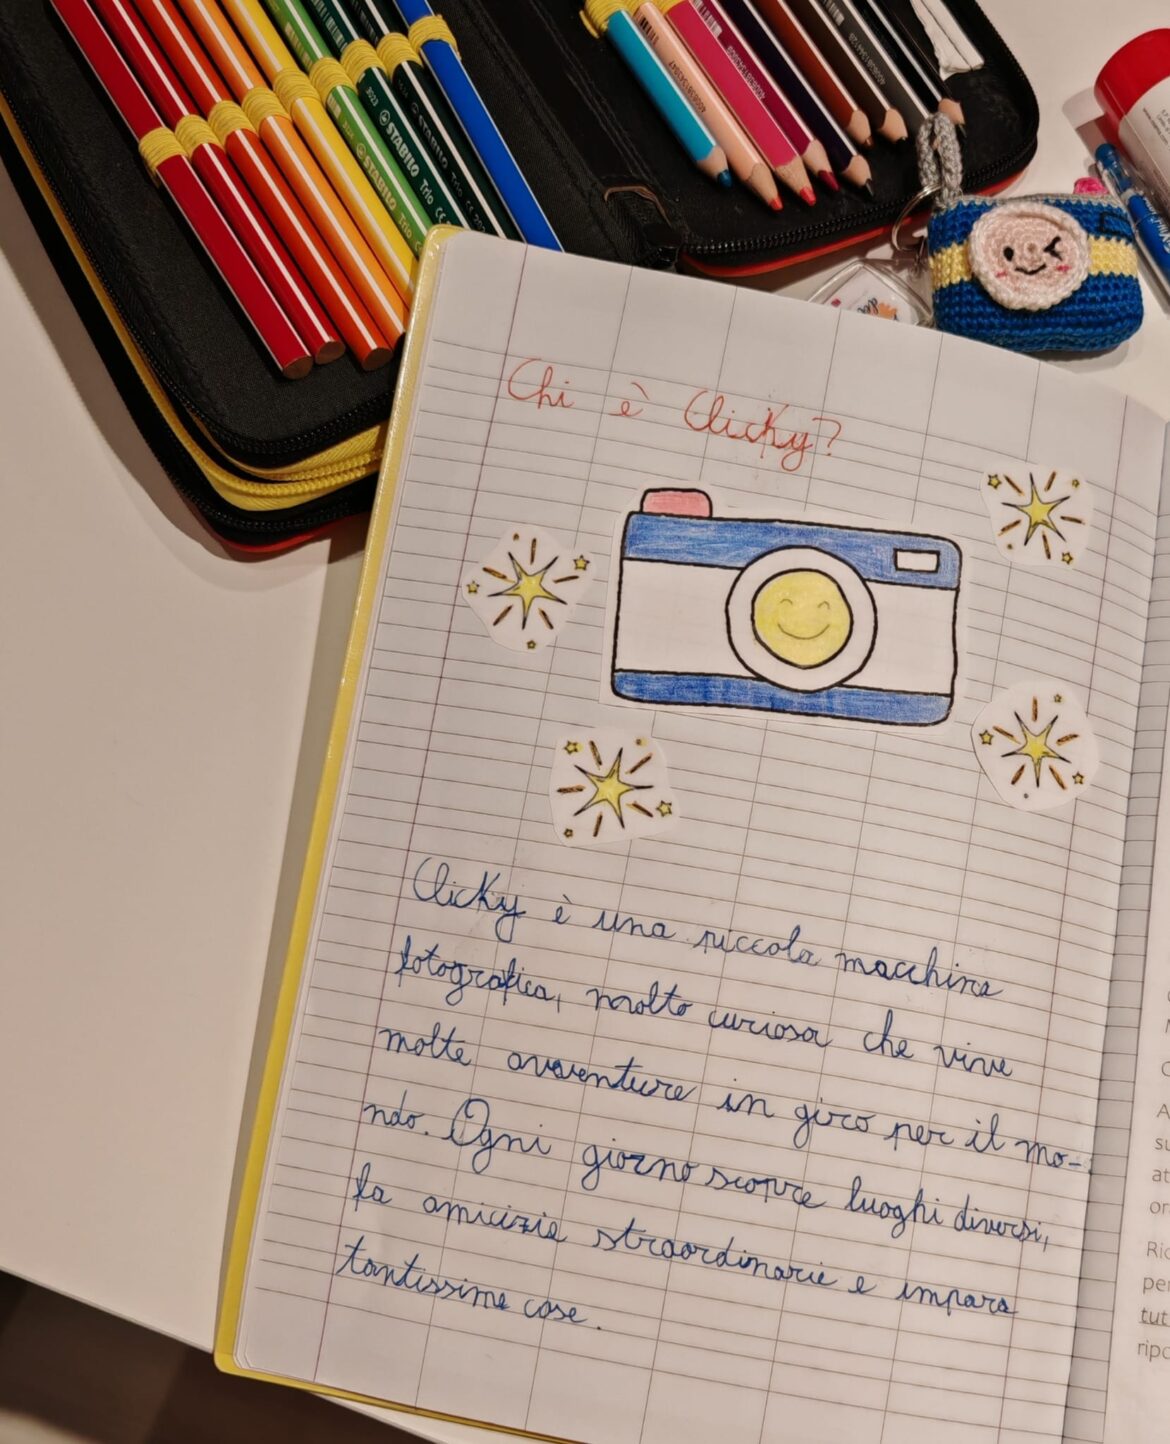 STABILO Trio
STABILO Trio
Chi è Clicky?
Clicky è una piccola macchina
fotografica, molto curiosa che vive
molte avventure in giro per il mo-
ndo. Ogni giorno scopre luoghi diversi,
fa amicizie straordinarie e impara
tantissime cose.